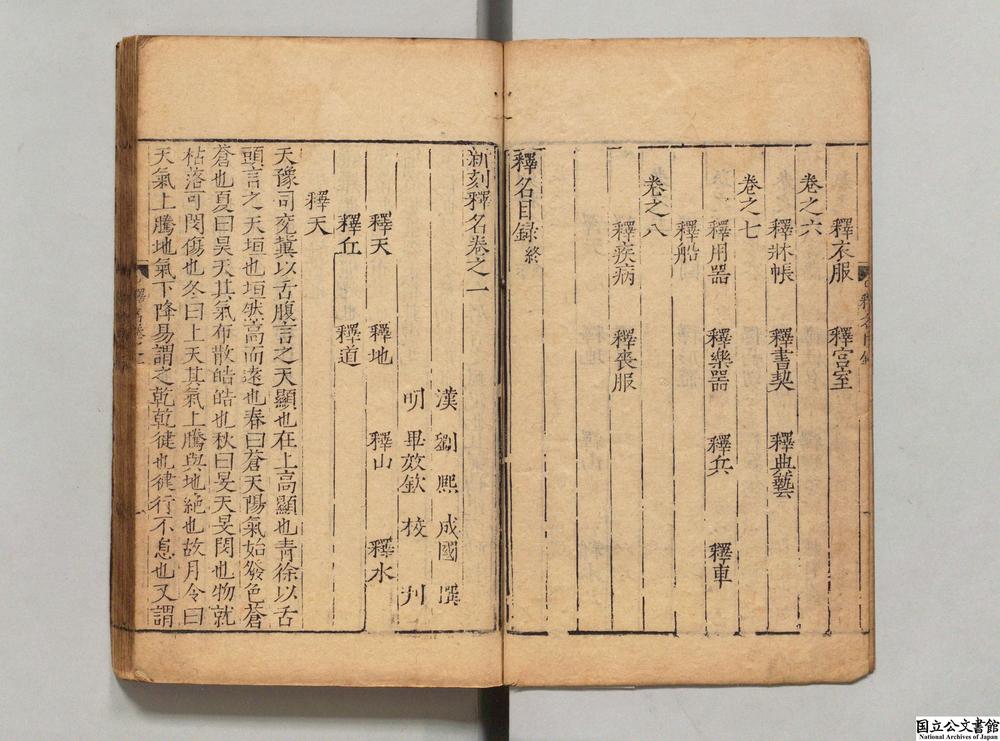 釋衣服 釋宮室
卷之六
釋牀帳 釋書契 釋典藝
卷之七
釋用器 釋樂器 釋兵 釋車
釋船
卷之八
釋疾病 釋喪服
釋名目録終
新刻釋名卷之一
漢 劉熙 成國 撰
明 畢效欽 校 刋
釋天 釋地 釋山 釋水
釋丘 釋道
釋天
天豫司兖冀以舌腹言之天顯也在上高顯也青徐以舌
頭言之天垣也垣然高而遠也春曰蒼天陽氣始發色蒼
蒼也夏曰昊天其氣布散皓皓也秋曰旻天旻閔也物就
枯落可閔傷也冬曰上天其氣上騰與地絶也故月令曰
天氣上騰地氣下降易謂之乾乾健也健行不息也又謂
国立公文書館
National Archives of Japan